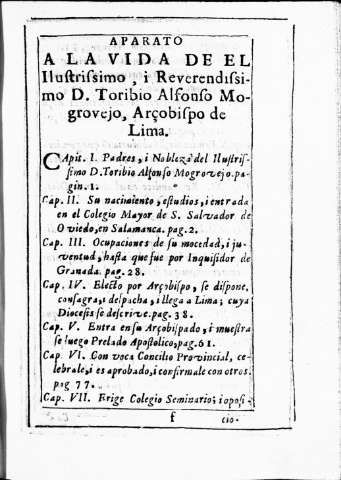 APARATO
A LA VIDA DE EL
Ilustrissimo, i Reverendissi-
mo D. Toribio Alfonso Mo-
grovejo, Arçobispo de
Lima.
CApit. I. Padres, i Nobleza del Ilustris-
simo D. Toribio Alfonso Mogrovejo. pa-
gin. 1.
Cap. II. Su nacimiento, estudios, i entrada
en el Colegio Mayor de S. Salvador de
Oviedo, en Salamanca. pag. 2.
Cap. III. Ocupaciones de su mocedad, i ju-
ventud, hasta que fue por Inquisidor de
Granada. pag. 28.
Cap. IV. Electo por Arçobispo, se dispone,
consagra, i despacha, i llega a Lima; cuya
Diocesis se descrive. pag. 38.
Cap. V. Entra en su Arçobispado, i muestra
se luego Prelado Apostolico, pag. 61.
Cap. VI. Con voca Concilio Provincial, ce-
lebrale, i es aprobado, i confirmale con otros.
pag 77.
Cap. VII. Erige Colegio Seminario; i oposi-
f
cio-